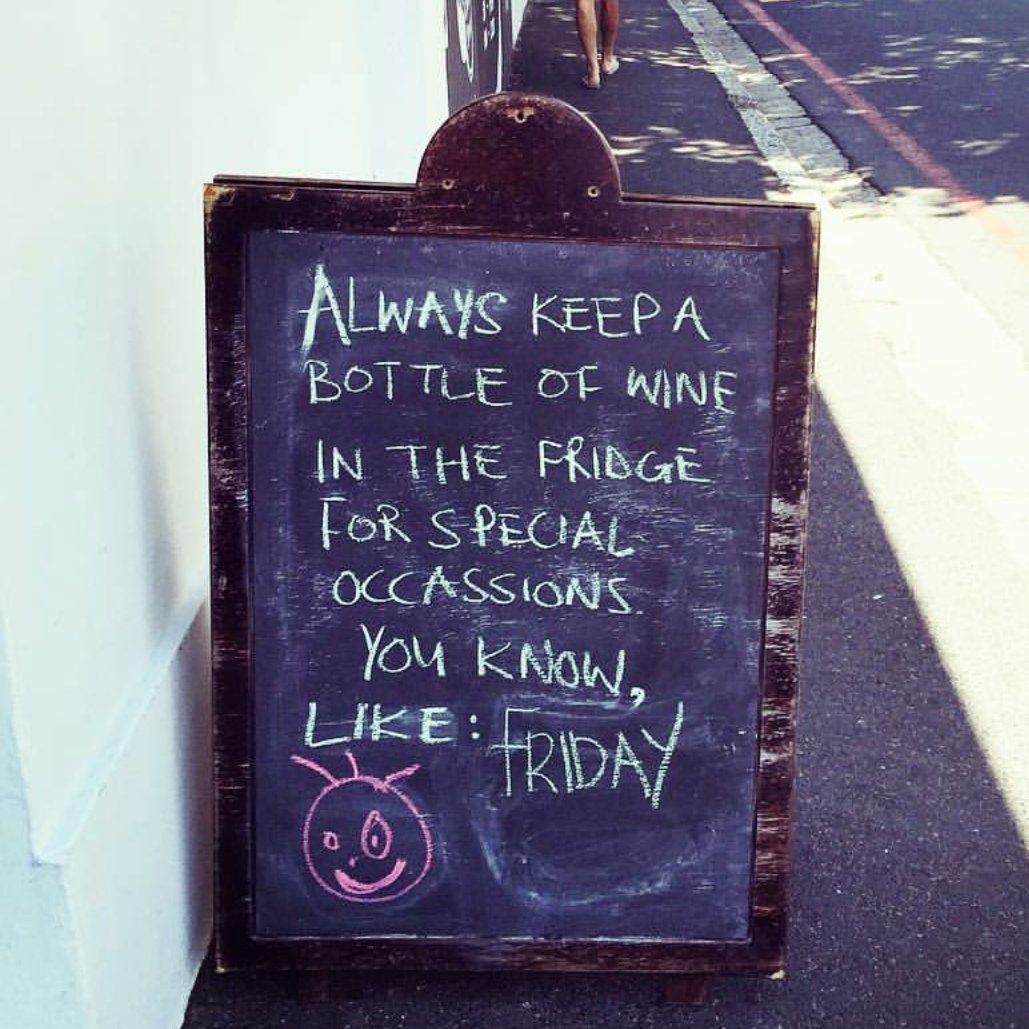 ALWAYS KEEP A
BOTTLE OF WINE
IN THE FRIDGE
FOR SPECIAL
OCCASSIONS.
YOU KNOW,
LIKE: FRIDAY